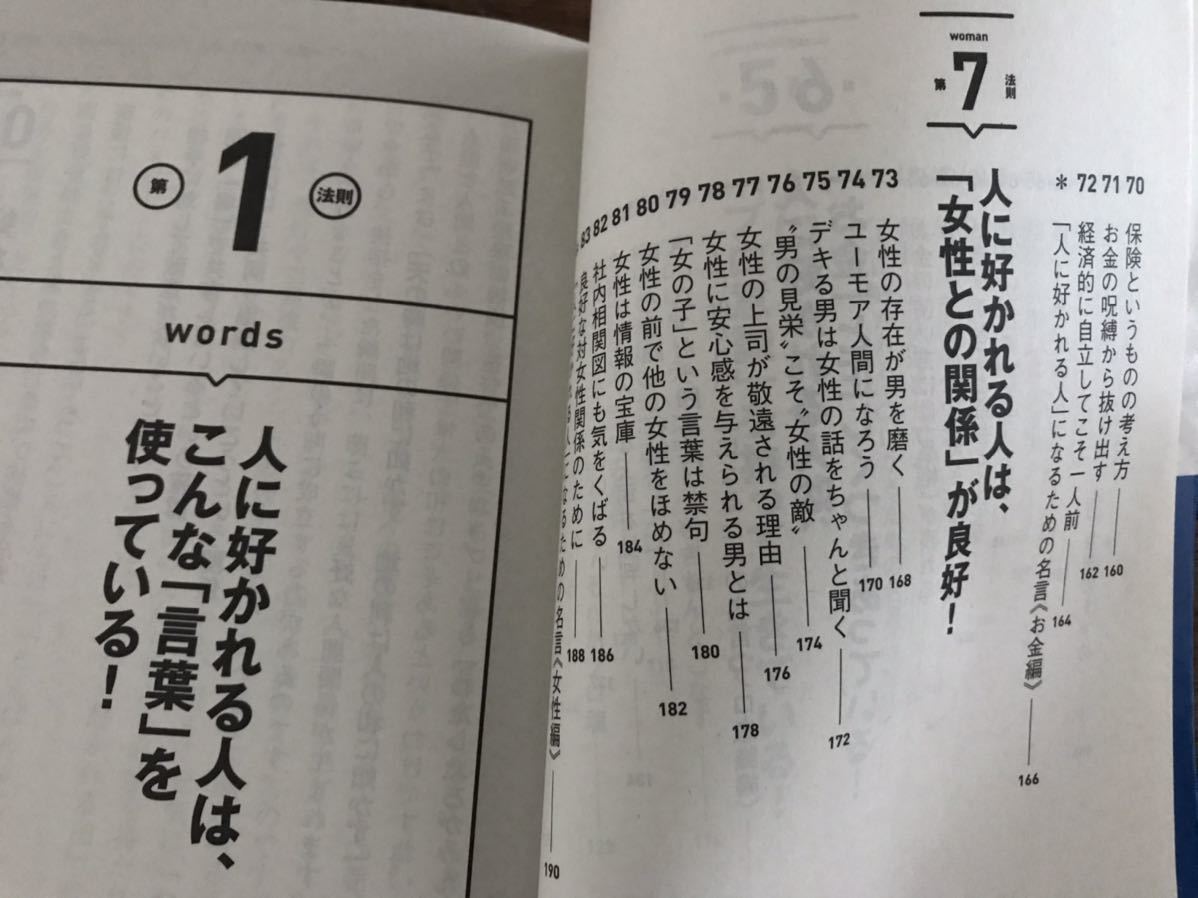 保険というものの考え方 160
70
71 お金の呪縛から抜け出す 162
72 経済的に自立してこそ一人前 164
* 「人に好かれる人」になるための名言《お金編》 166
woman
第7法則
人に好かれる人は、
「女性との関係」が良好！
73 女性の存在が男を磨く 168
74 ユーモア人間になろう 170
75 デキる男は女性の話をちゃんと聞く 172
76 〝男の見栄〟こそ〝女性の敵〟 174
77 女性の上司が敬遠される理由 176
78 女性に安心感を与えられる男とは 178
79 「女の子」という言葉は禁句 180
80 女性の前で他の女性をほめない 182
81 女性は情報の宝庫 184
82 社内相関図にも気をくばる 186
83 良好な対女性関係のために 188
になるための名言《女性編》 190
第1法則
words
人に好かれる人は、
こんな「言葉」を
使っている！